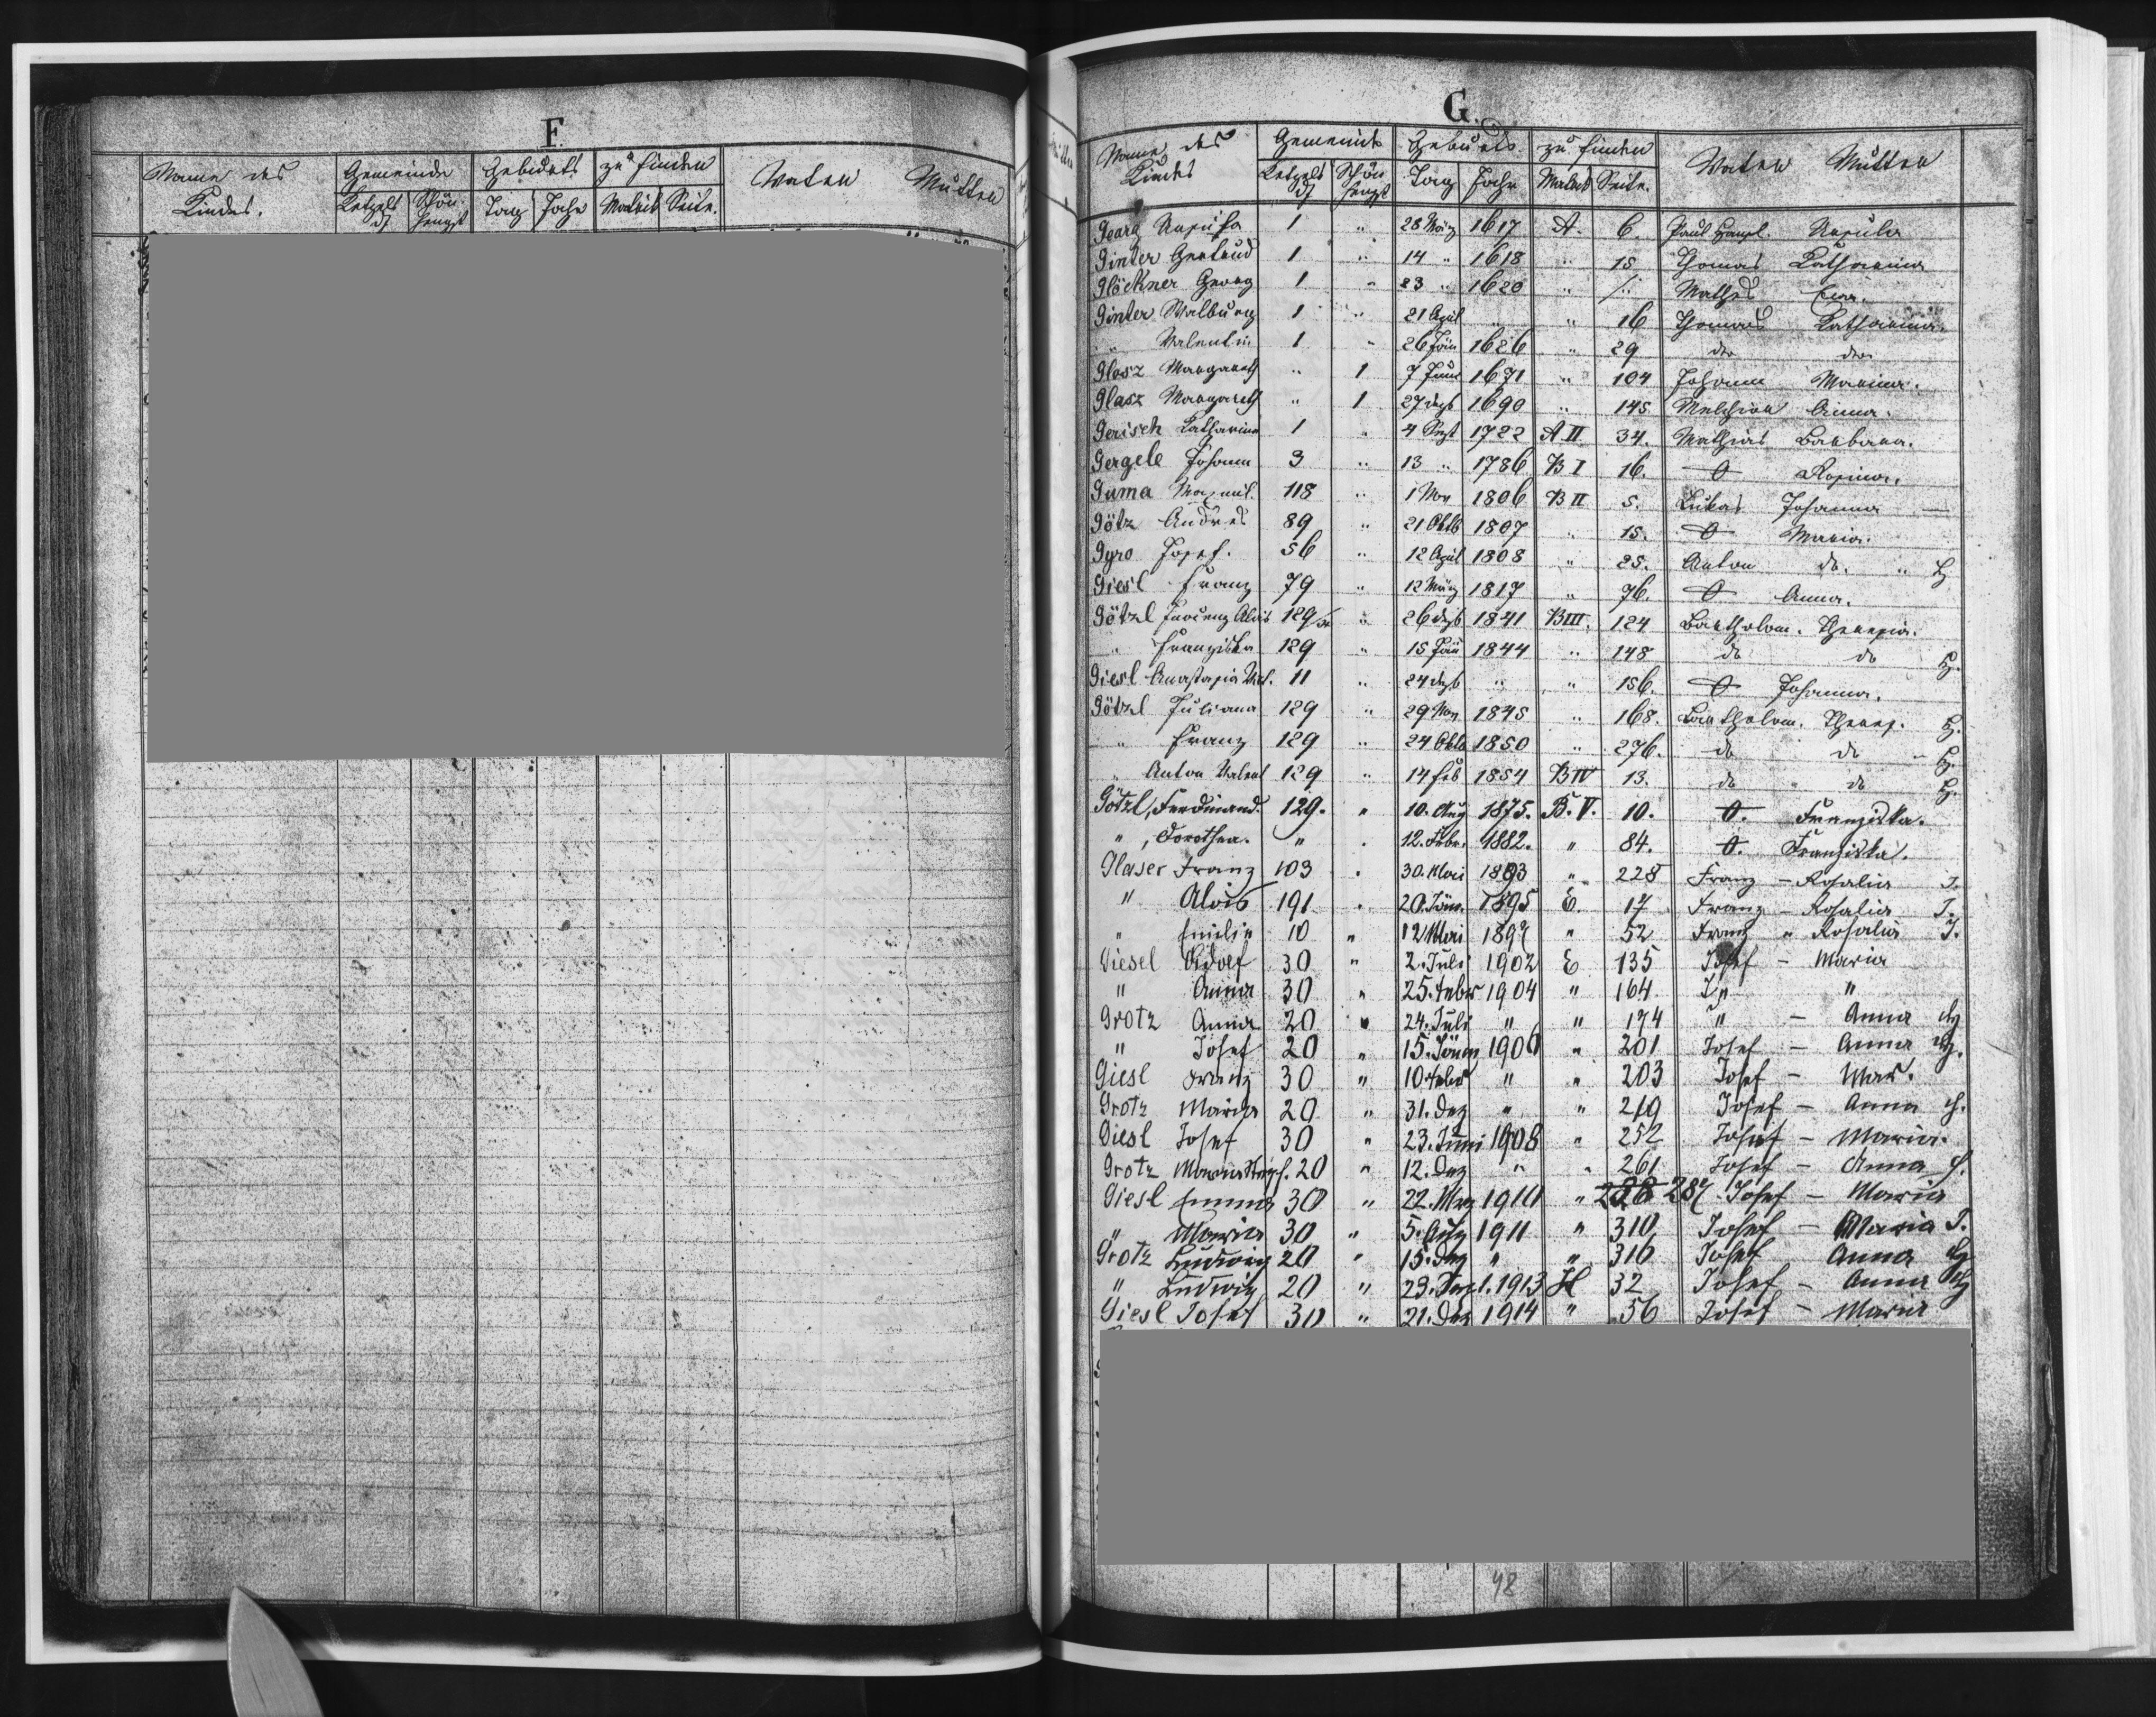 F.
Name des Kindes.
Gemeinde
Ketzelsd
Schönhengst
Tag
Jahr
zu finden
Matrik
Seite.
Vater
Mutter
G.
Name des Kindes
Gemeinde
Ketzelsd
Schönhengst
Geburts
Tag
Jahr
zu finden
Matrik
Seite.
Vater Mutter
Georg 1 " 28 März 1617 A. 6. Paul Ursula
Ginter Gertrud 1 " 14 " 1618 " 15 Thomas Katharina
Glöckner Georg 1 " 23 " 1620 " Mathes Eva.
Ginter Walburg 1 " 21 April " " 16 Thomas Katharina.
" Valentin 1 " 26 Jän 1626 " 29 do do
Glosz Margareth " 1 7 Juni 1671 " 104 Johann Marina.
Glasz Margareth " 1 27 dezb 1690 " 145 Melchior Anna.
Gerisch Katharina 1 " 4 Sept 1722 A II. 34. Mathias Barbara.
Gergele Johann 3 " 13 " 1786 B I 16. O Rosina.
Guma Maxmil. 118 " 1 Nov 1806 B II 5. Lukas Johanna
Götz Andres 89 " 21 Oktb 1807 " 15. O Maria.
Gyro Josef. 56 " 12 April 1808 " 25. Anton do. "
Giesl Franz 79 " 12 März 1817 " 76. O Anna.
Götzl Alois 129 " 26 dezb 1841 BIII. 124 Bartholom. Theresia.
" Franziska 129 " 15 Jän 1844 " 148 do do
Giesl Anastasia 11 " 24 dezb " " 156. O Johanna.
Götzl Juliana 129 " 29 Nov 1845 " 168. Bartholom. Theres.
" Franz 129 " 24 Oktb 1850 " 276. do do
" Anton 129 " 14 feb 1854 BIV 13. do do
Götzl, Ferdinand. 129. " 10. Aug 1875. B. V. 10. O. Franziska.
", Dorothea. " 12. Febr. 1882. " 84. O. Franziska.
Glaser Franz 103 30. Mai 1893 " 228 Franz - Rosalia J.
" Alois 191 20. Jän. 1895 E. 17 Franz - Rosalia J.
" Emilie 10 " 12 Mai 1897 " 52 Franz " Rosalia J.
Giesel Adolf 30 " 2. Juli 1902 E 135 Josef - Maria
" Anna 30 " 25. Febr 1904 " 164 "
Grotz Anna 20 " 24. Juli " " 174 " - Anna
" Josef 20 " 15. Jänn 1906 " 201 Josef - Anna
Giesl Franz 30 " 10 Febr " " 203 Josef - Mar.
Grotz Maria 20 " 31. Dez " " 219 Josef - Anna
Giesl Josef 30 " 23. Juni 1908 " 252 Josef - Maria.
Grotz Maria 20 " 12. Dez " " 261 Josef - Anna
Giesl Emma 30 " 22. 1910 " 287 Josef - Maria
" Maria 30 " 5. Aug 1911 " 310 Josef - Maria J.
Grotz Ludwig 20 " 15. Dez " " 316 Josef Anna
" Ludwig 20 " 23. 1913 H 32 Josef - Anna
Giesl Josef 30 " 21. Dez 1914 " 56 Josef - Maria
48